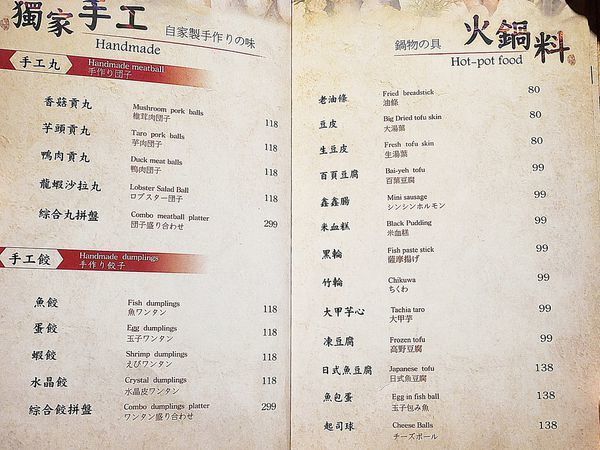 獨家手工 自家製手作りの味
Handmade
手工丸 Handmade meatball
手作り団子
香菇貢丸 Mushroom pork balls
椎茸肉団子 118
芋頭貢丸 Taro pork balls
芋肉団子 118
鴨肉貢丸 Duck meat balls
鴨肉団子 118
龍蝦沙拉丸 Lobster Salad Ball
ロブスター団子 118
綜合丸拼盤 Combo meatball platter
団子盛り合わせ 299
手工餃 Handmade dumplings
手作り餃子
魚餃 Fish dumplings
魚ワンタン 118
蛋餃 Egg dumplings
玉子ワンタン 118
蝦餃 Shrimp dumplings
えびワンタン 118
水晶餃 Crystal dumplings
水晶皮ワンタン 118
綜合餃拼盤 Combo dumplings platter
ワンタン盛り合わせ 299
鍋物の具 火鍋料
Hot-pot food
老油條 Fried breadstick 80
油條
豆皮 Big Dried tofu skin 80
大湯葉
生豆皮 Fresh tofu skin 80
生湯葉
百頁豆腐 Bai-yeh tofu 99
百葉豆腐
鑫鑫腸 Mini sausage 99
シンシンホルモン
米血糕 Black Pudding 99
米血糕
黑輪 Fish paste stick 99
薩摩揚げ
竹輪 Chikuwa 99
ちくわ
大甲芋心 Tachia taro 99
大甲芋
凍豆腐 Frozen tofu 99
高野豆腐
日式魚豆腐 Japanese tofu 138
日式魚豆腐
魚包蛋 Egg in fish ball 138
玉子包み魚
起司球 Cheese Balls 138
チーズボール